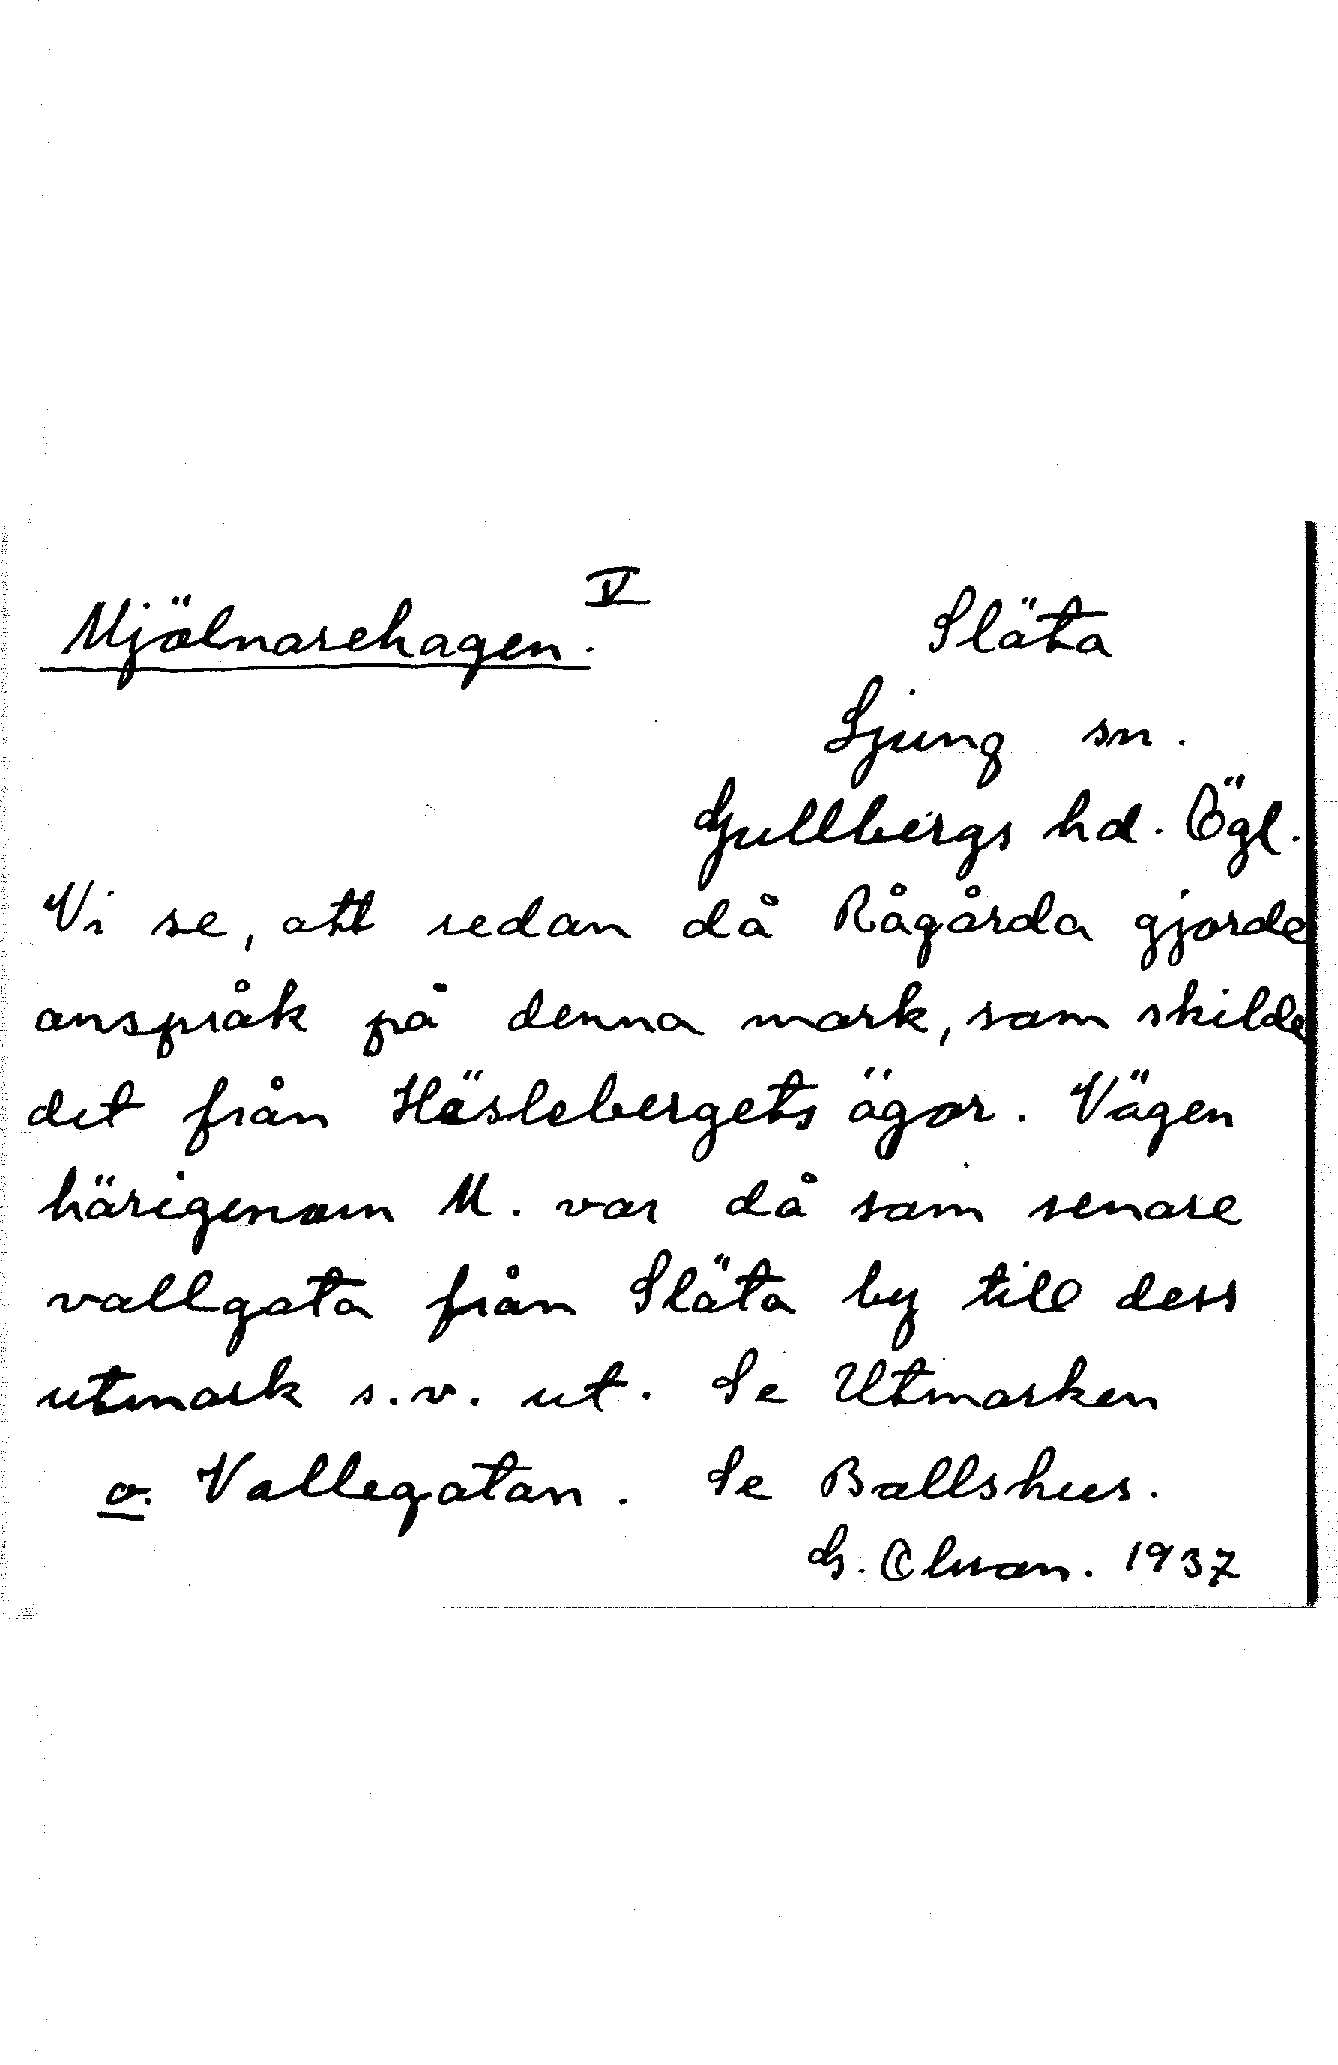 Mjölnarehagen. V
Släta
Ljung sn.
Gullbergs hd. Ögl.
Vi se, att redan då Rågårda gjorde
anspråk på denna mark, som skilde
det från Häslebergets ägor. Vägen
härigenom M. var då som senare
vallgata från Släta by till dess
utmark s.v. ut. Se Utmarken
o. Vallegatan. Se Ballshus.
G. 1937